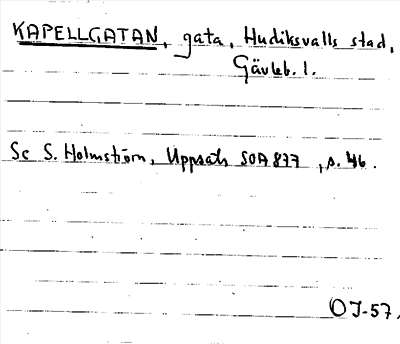 KAPELLGATAN, gata, Hudiksvalls stad,
Gävleb. l.
Se S. Holmström, Uppsats SOA 877, s. 46.
OJ-57.